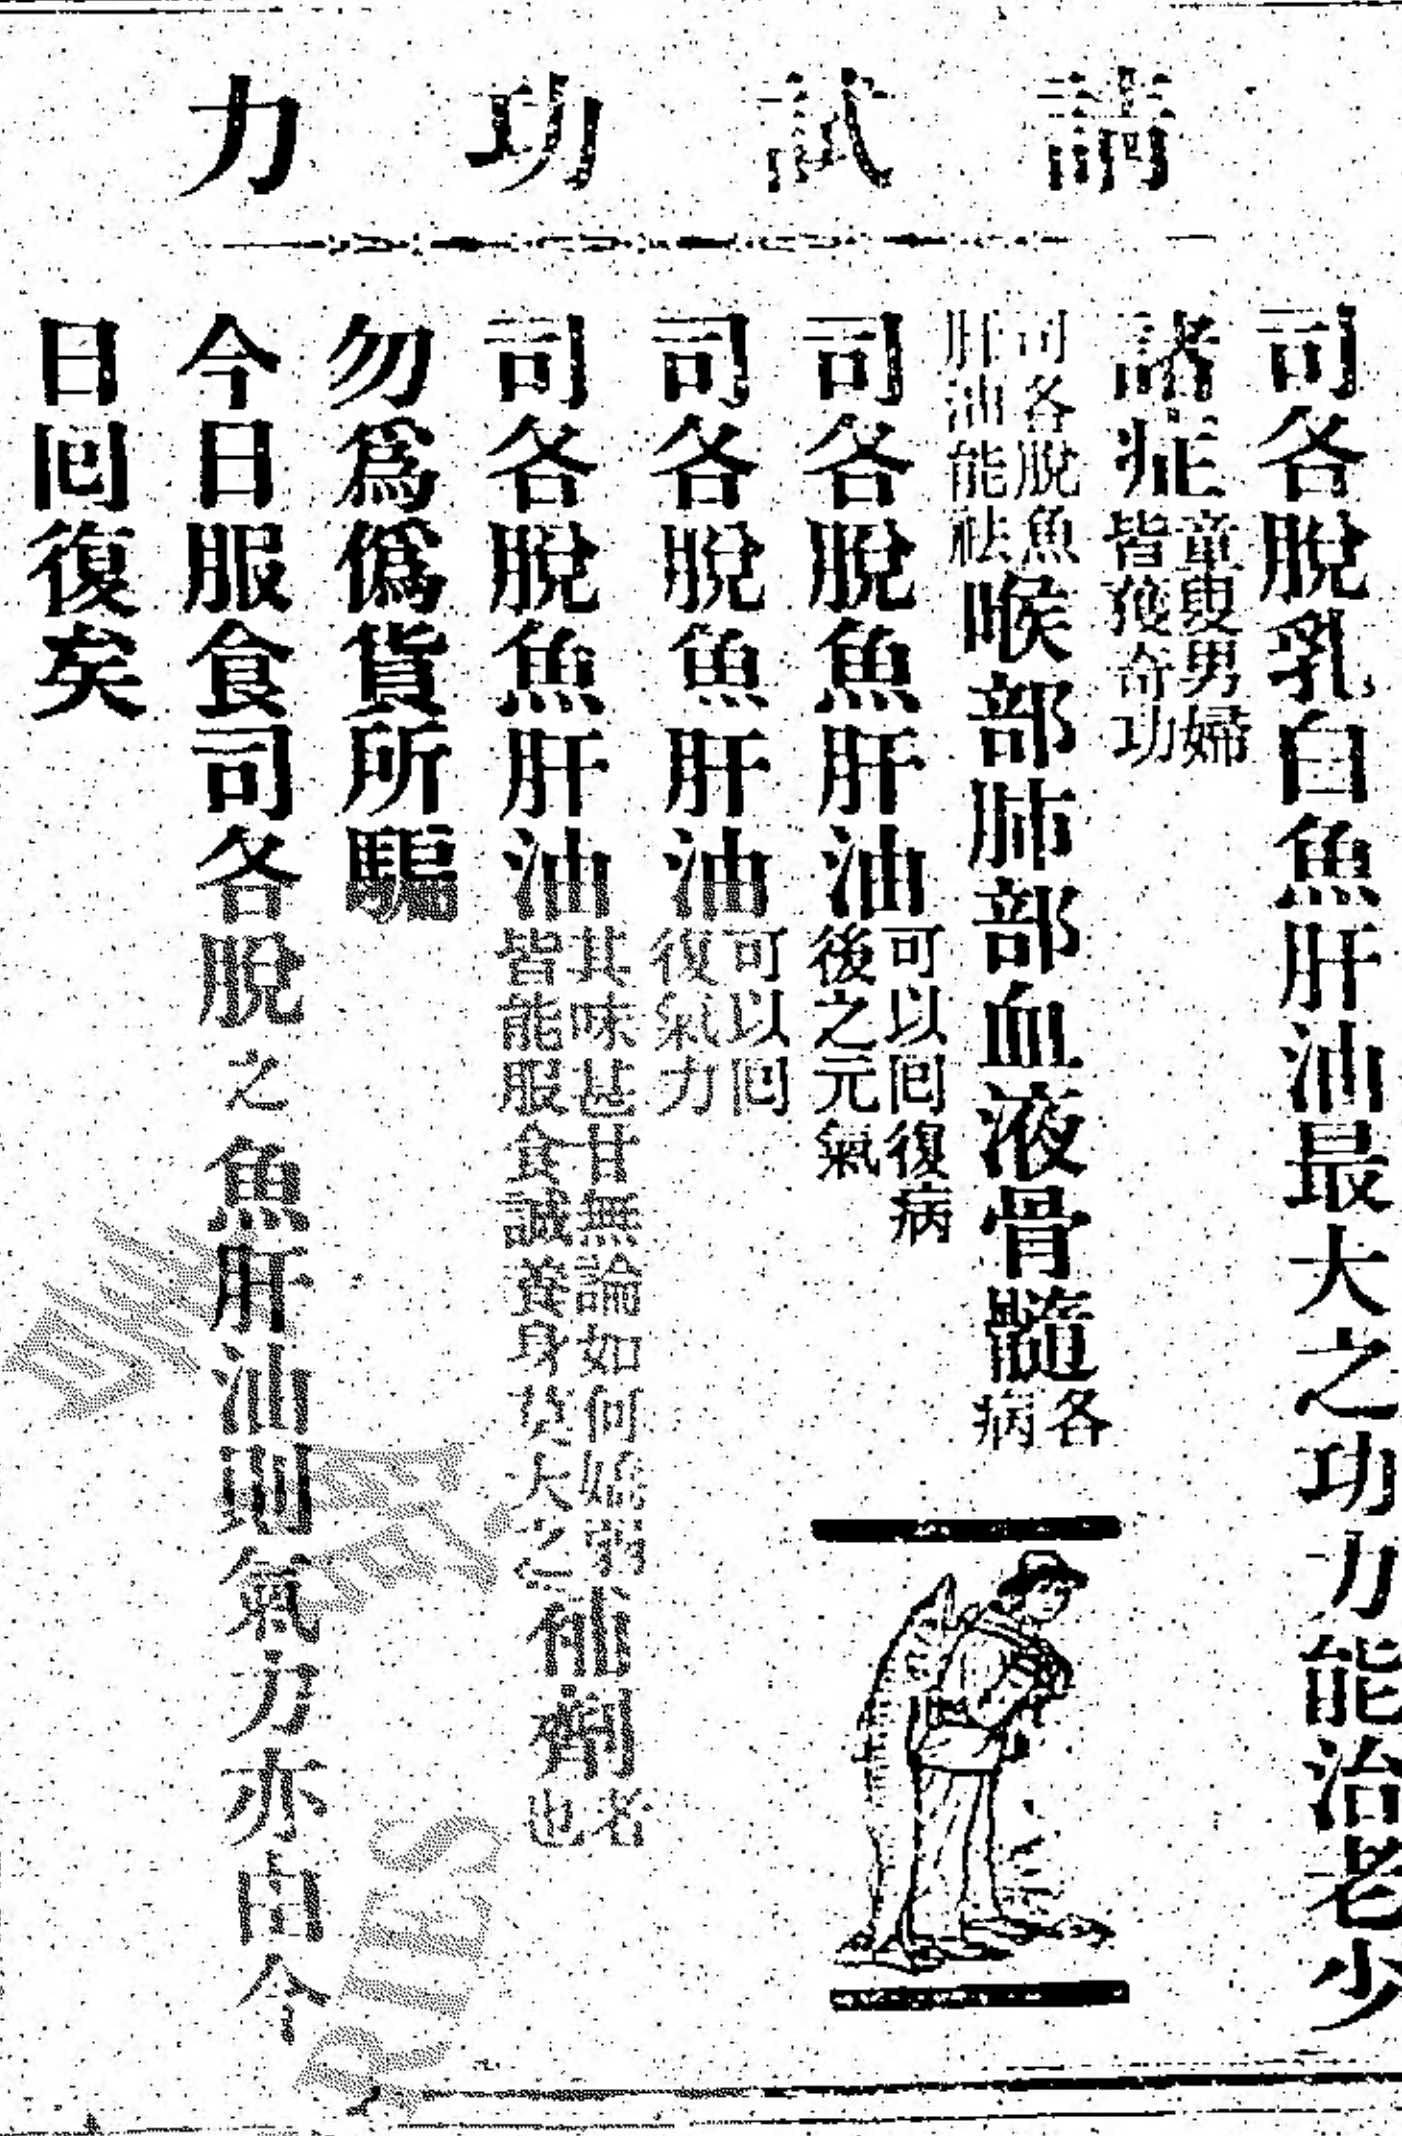 請試功力
司各脫乳白魚肝油最大之功力能治老少
諸症童叟男婦皆獲奇功
司各脫魚肝油能祛喉部肺部血液骨髓各病
司各脫魚肝油可以囘復病後之元氣
司各脫魚肝油可以囘復氣力
司各脫魚肝油其味甚甘無論如何弱皆能服食誠養身莫大之補劑者也
勿爲僞貨所騙
今日服食司各脫之魚肝油則氣力亦由今
日囘復矣